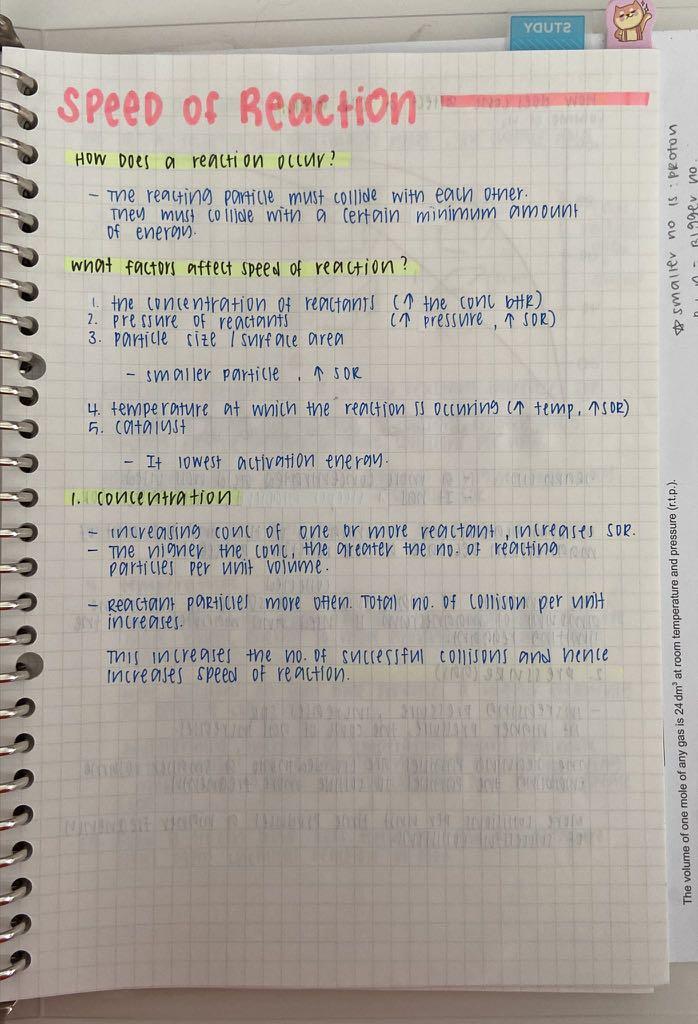 STUDY
SPEED OF REACTION
HOW DOES a reaction occur?
- The reacting particle must collide with each other.
They must collide with a certain minimum amount
of energy.
what factors affect speed of reaction?
1. the concentration of reactants (↑ the conc
2. pressure of reactants (↑ pressure, ↑ SOR)
3. particle size / surface area
- smaller particle, ↑ SOR
4. temperature at which the reaction is occuring (↑ temp, ↑ SOR)
5. catalyst
- It lowest activation energy.
1. concentration
- increasing conc of one or more reactant, increases SOR.
- The higher the conc, the greater the no. of reacting
particles per unit volume.
- Reactant particles more often. Total no. of collison per unit
increases.
This increases the no. of successful collisons and hence
increases speed of reaction.
☆ smaller no is : proton
The volume of one mole of any gas is 24 dm³ at room temperature and pressure (r.t.p.).